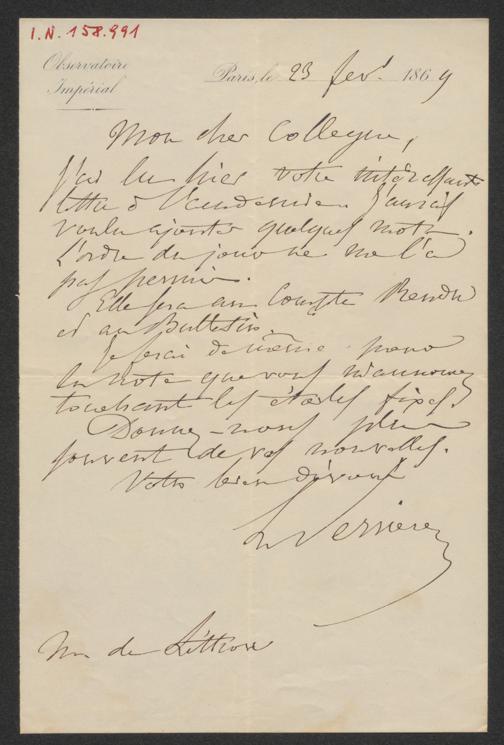 I.N. 158.991
Observatoire
Impérial
Paris, le 23 fev. 1869
Mon cher Collegue,
J'ai lu hier votre intéressante
lettre à l'academie. J'aurais
voulu ajouter quelques mots.
L'ordre du jour ne me l'a
pas permis.
Elle sera au Compte Rendu
et au Bulletin.
Je ferai de même pour
la note que vous m'annoncez
touchant les étoiles fixes.
Donnez-nous plus
souvent de vos nouvelles.
Votre bien dévoué
Le Verrier
Mr de Littrow